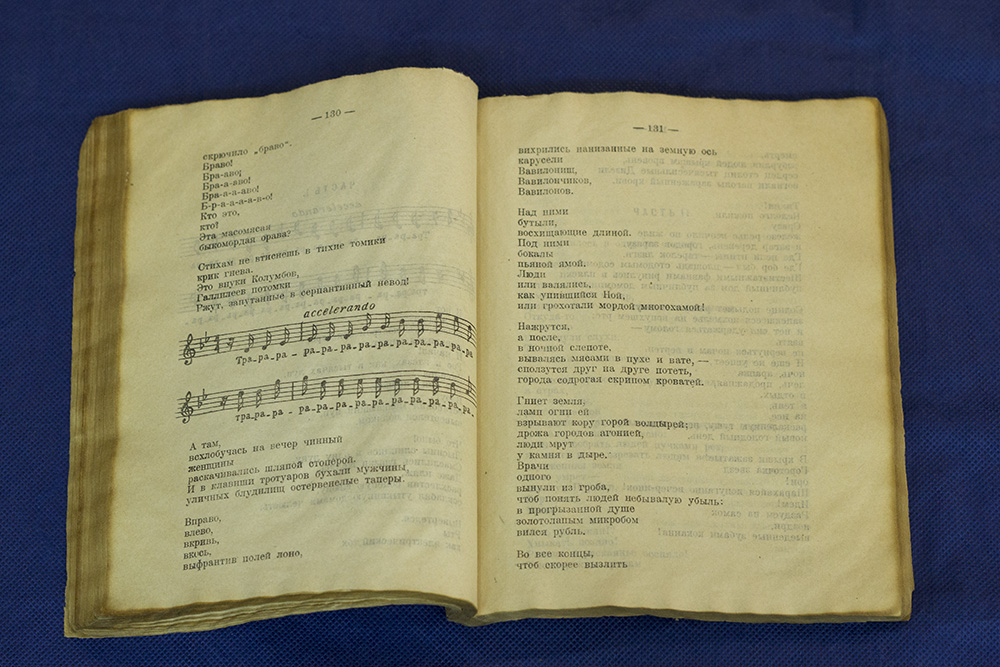 — 130 —
скрючило „браво“.
Браво!
Бра-аво!
Бра-а-аво!
Бра-а-а-аво!
Б-р-а-а-а-а-в-о!
Кто это,
кто?
Эта масомясая
быкомордая орава?
Стихам не втиснешь в тихие томики
крик гнева.
Это внуки Колумбов,
Галлилеев потомки
Ржут, запутанные в серпантинный невод!
accelerando
Тра-ра-ра - ра-ра-ра-ра-ра-ра-ра-ра-ра-
тра-ра-ра - ра-ра-ра-ра-ра-ра-ра-ра-ра-
А там,
всхлобучась на вечер чинный
женщины
раскачивались шляпой стоперой.
И в клавиши тротуаров бухали мужчины,
уличных блудилищ остервенелые таперы.
Вправо,
влево,
вкривь,
вкось,
выфрантив полей лоно,
— 131 —
вихрились нанизанные на земную ось
карусели
Вавилонищ,
Вавилончиков,
Вавилонов.
Над ними
бутыли,
восхищающие длиной.
Под ними
бокалы
пьяной ямой.
Люди
или валялись,
как упившийся Ной,
или грохотали мордой многохамой!
Нажрутся,
а после,
в ночной слепоте,
вывалясь мясами в пухе и вате, —
сползутся друг на друге потеть,
города содрогая скрипом кроватей.
Гниет земля,
ламп огни ей
взрывают кору горой волдырей;
дрожа городов агонией,
люди мрут
у камня в дыре.
Врачи
одного
вынули из гроба,
чтоб понять людей небывалую убыль:
в прогрызанной душе
золотолапым микробом
вился рубль.
Во все концы,
чтоб скорее вызлить